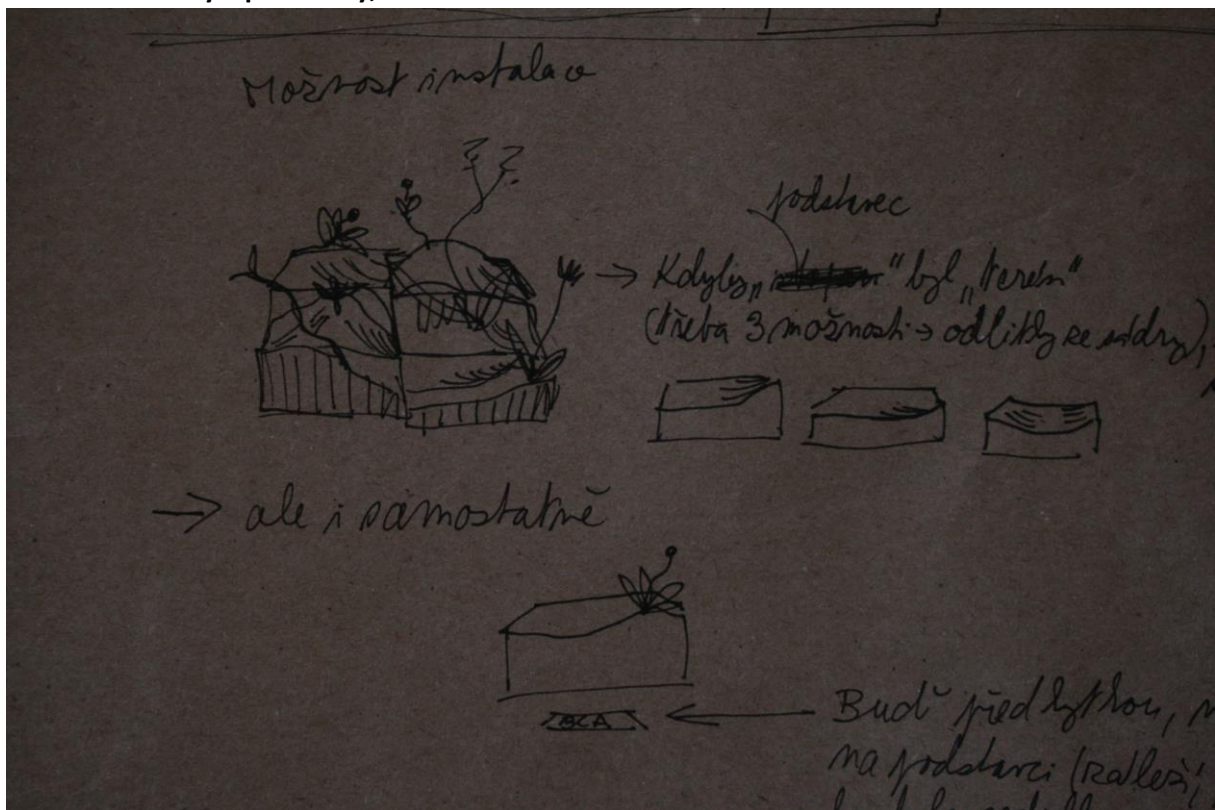 Možnost instalace
? ?
podstavec
→ Kdyby „ " byl „terén"
(třeba 3 možnosti → odlitky ze sádry),
→ ale i samostatně
Buď před kytkou, 
na podstavci (záleží,